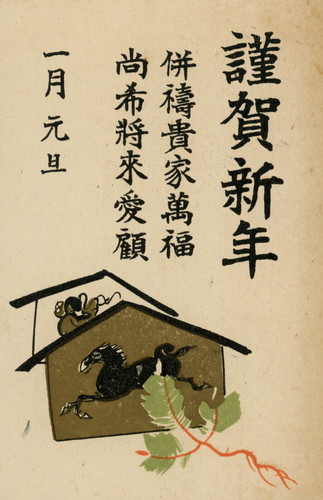 謹賀新年
併禱貴家萬福
尚希將來愛顧
一月元旦